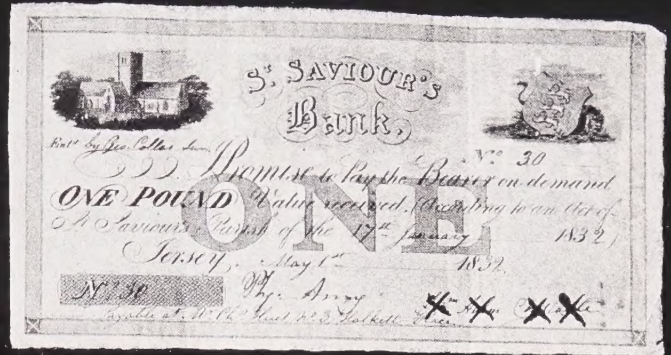 St. SAVIOUR'S
Bank.
by Geo. Collas
No. 30
I Promise to Pay the Bearer on demand
ONE POUND Value received. (According to an Act of
St. Saviour's Parish of the 17th January 1832)
ONE
Jersey, May 1st 1832.
No. 30
Payable at